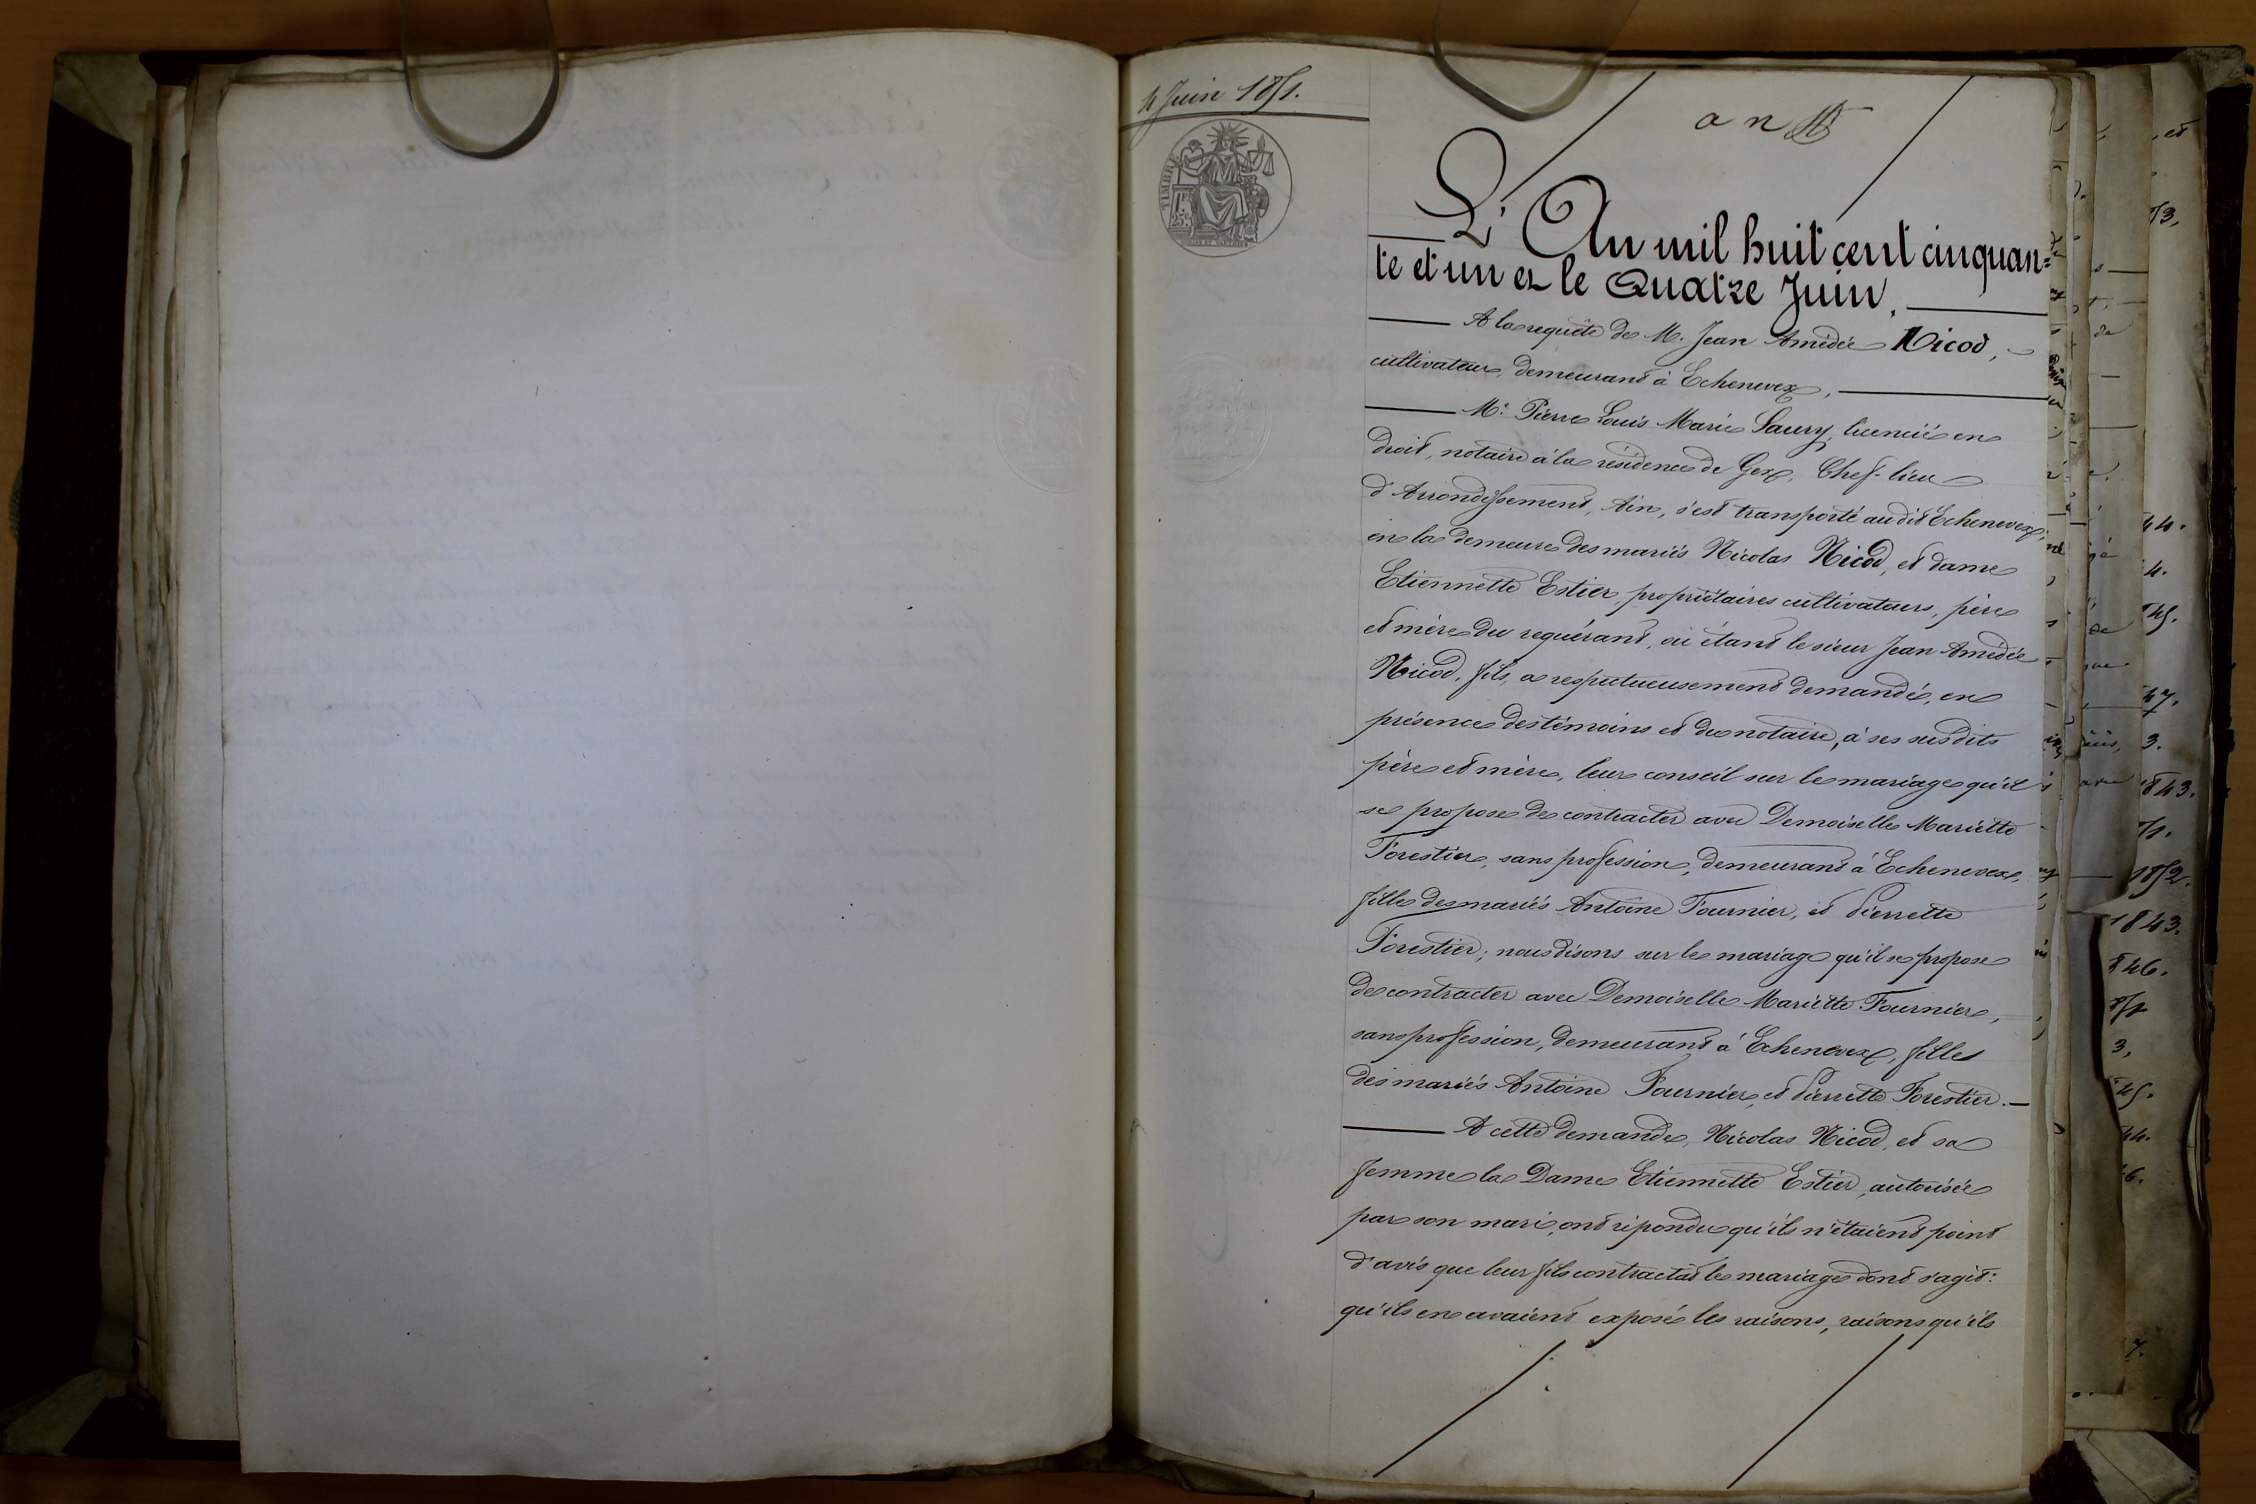 4 Juin 1851.
TIMBRE
a n
L'An mil huit cent cinquan=
te et un et le Quatre Juin.
A la requête de M. Jean Amédée Nicod,
cultivateur, demeurant à Echenevex,
Me. Pierre Louis Marie Saury, licencié en
droit, notaire à la résidence de Gex, Chef-lieu
d'Arrondissement, Ain, s'est transporté au dit Echenevex,
en la demeure des mariés Nicolas Nicod, et dame
Etiennette Estier, propriétaires cultivateurs, père
et mère du requérant, où étant le sieur Jean Amédée
Nicod, fils, a respectueusement demandé, en
présence des témoins et du notaire, à ses susdits
père et mère, leur conseil sur le mariage qu'il
se propose de contracter avec Demoiselle Mariette
Forestier, sans profession, demeurant à Echenevex,
fille des mariés Antoine Fournier, et Pierrette
Forestier; nous disons sur le mariage qu'il se propose
de contracter avec Demoiselle Mariette Fournier,
sans profession, demeurant à Echenevex, fille
des mariés Antoine Fournier, et Pierrette Forestier.
A cette demande, Nicolas Nicod, et sa
femme la Dame Etiennette Estier, autorisée
par son mari, ont répondu qu'ils n'étaient point
d'avis que leur fils contractât le mariage dont s'agit:
qu'ils en avaient exposé les raisons, raisons qu'ils
1843.
1852.
1843.